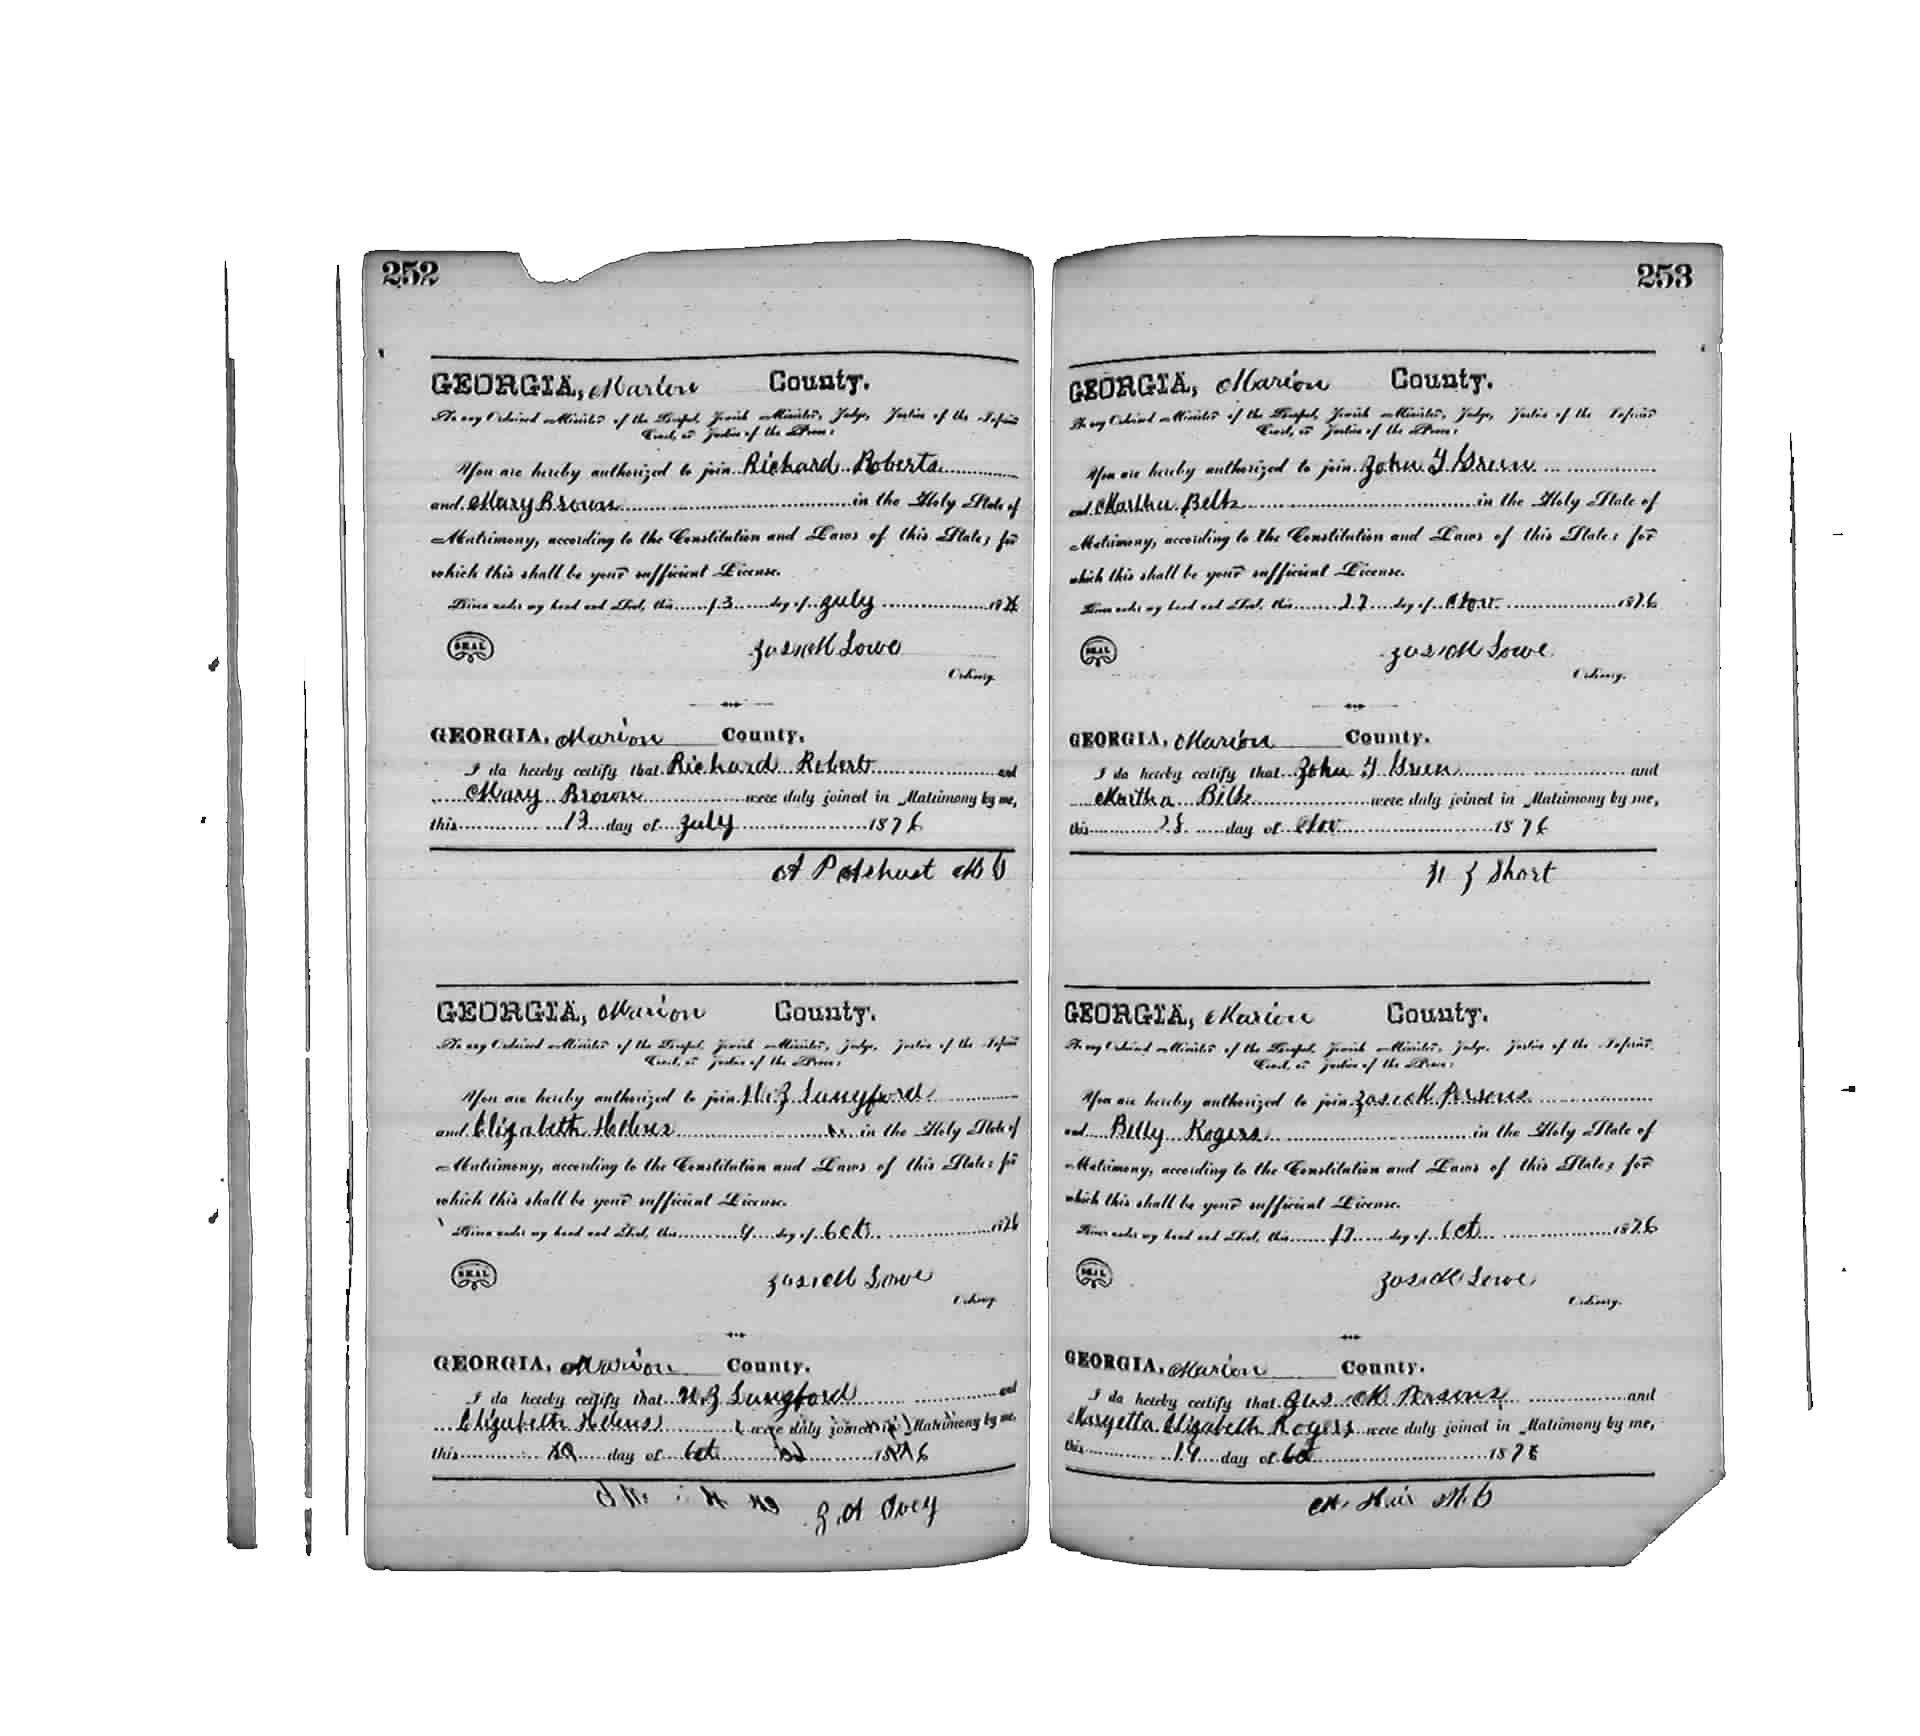 252
GEORGIA, Marion County.
To any Ordained Minister of the Gospel, Jewish Minister, Judge, Justice of the Inferior
Court, or Justice of the Peace:
You are hereby authorized to join Richard Roberts
and Mary Brown in the Holy State of
Matrimony, according to the Constitution and Laws of this State; for
which this shall be your sufficient License.
Given under my hand and Seal, this 13 day of July 1876
SEAL
Jas M Lowe
Ordinary.
GEORGIA, Marion County.
I do hereby certify that Richard Roberts and
Mary Brown were duly joined in Matrimony by me,
this 13 day of July 1876
A P
GEORGIA, Marion County.
To any Ordained Minister of the Gospel, Jewish Minister, Judge, Justice of the Inferior
Court, or Justice of the Peace:
You are hereby authorized to join Langford
and Elizabeth in the Holy State of
Matrimony, according to the Constitution and Laws of this State; for
which this shall be your sufficient License.
Given under my hand and Seal, this 9 day of Oct 1876
SEAL
Jas M Lowe
Ordinary.
GEORGIA, Marion County.
I do hereby certify that Langford and
Elizabeth were duly joined in Matrimony by me,
this day of Oct 1876
Ivey
253
GEORGIA, Marion County.
To any Ordained Minister of the Gospel, Jewish Minister, Judge, Justice of the Inferior
Court, or Justice of the Peace:
You are hereby authorized to join John T Green
and Martha Belk in the Holy State of
Matrimony, according to the Constitution and Laws of this State; for
which this shall be your sufficient License.
Given under my hand and Seal, this 27 day of Nov 1876
SEAL
Jas M Lowe
Ordinary.
GEORGIA, Marion County.
I do hereby certify that John T Green and
Martha Belk were duly joined in Matrimony by me,
this 28 day of Nov 1876
Short
GEORGIA, Marion County.
To any Ordained Minister of the Gospel, Jewish Minister, Judge, Justice of the Inferior
Court, or Justice of the Peace:
You are hereby authorized to join Jas M Persons
and Betty Rogers in the Holy State of
Matrimony, according to the Constitution and Laws of this State; for
which this shall be your sufficient License.
Given under my hand and Seal, this 17 day of Oct 1876
SEAL
Jas M Lowe
Ordinary.
GEORGIA, Marion County.
I do hereby certify that Jas M Persons and
Margetta Elizabeth Rogers were duly joined in Matrimony by me,
this 19 day of Oct 1876